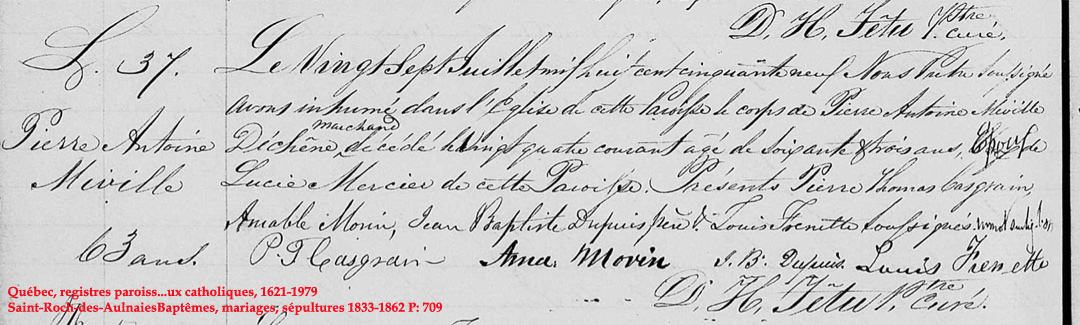 D. H. Têtu Ptre Curé.
S. 37.
Pierre Antoine
Miville
63 ans.
Le Vingt Sept Juillet mil huit cent cinquante neuf Nous Prêtre soussigné
avons inhumé dans l'Eglise de cette Paroisse le corps de Pierre Antoine Miville
Déchêne, marchand décédé le vingt quatre courant agé de soixante & trois ans, Epoux de
Lucie Mercier de cette Paroisse. Présents Pierre Thomas Casgrain,
Amable Morin, Jean Baptiste Dupuis père & Louis Frenette soussignés.
P. T. Casgrain Ama. Morin J. B. Dupuis Louis Frenette
D. H. Têtu Ptre Curé.
Québec, registres paroiss...ux catholiques, 1621-1979
Saint-Roch-des-AulnaiesBaptêmes, mariages, sépultures 1833-1862 P: 709